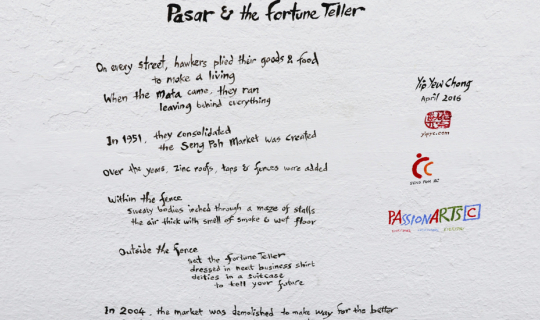 Pasar & the Fortune Teller
On every street, hawkers plied their goods & food
to make a living
When the Mata came, they ran
leaving behind everything
In 1951, they consolidated
the Seng Poh Market was created
Over the years, zinc roofs, taps & fences were added
Within the fence
sweaty bodies inched through a maze of stalls
the air thick with smell of smoke & wet floor
Outside the fence
sat the Fortune Teller
dressed in neat business shirt
deities in a suitcase
to tell your future
In 2004, the market was demolished to make way for the better
Yip Yew Chong
April 2016
yipyc.com
PASSIONARTS